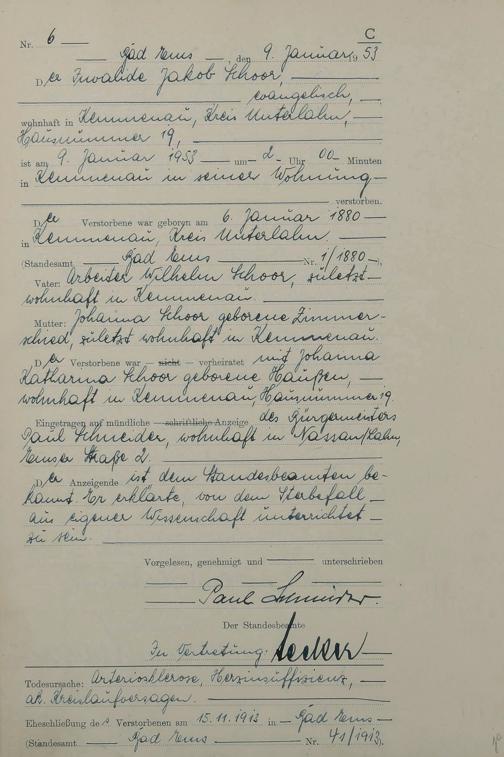 C
Nr. 6 —
— Bad Ems —, den 9. Januar 1953
Der Invalide Jakob Schoor, —
evangelisch, —
wohnhaft in Kemmenau, Kreis Unterlahn, —
Hausnummer 19, —
ist am 9. Januar 1953 — um — 2 — Uhr 00 — Minuten
in Kemmenau in seiner Wohnung —
verstorben.
Der Verstorbene war geboren am 6. Januar 1880 —
in Kemmenau, Kreis Unterlahn. —
(Standesamt — Bad Ems — Nr. 1/1880 —),
Vater: Arbeiter Wilhelm Schoor, zuletzt —
wohnhaft in Kemmenau. —
Mutter: Johanna Schoor geborene Zimmer-
schied, zuletzt wohnhaft in Kemmenau.
Der Verstorbene war — nicht — verheiratet mit Johanna
Katharina Schoor geborene Haußen, —
wohnhaft in Kemmenau, Hausnummer 19.
Eingetragen auf mündliche — schriftliche Anzeige des Bürgermeisters
Paul Schneider, wohnhaft in Nassau/Lahn,
Emser Straße 2.
Der Anzeigende ist dem Standesbeamten be-
kannt. Er erklärte, von dem Sterbefall —
aus eigener Wissenschaft unterrichtet —
zu sein. —
Vorgelesen, genehmigt und — unterschrieben
Paul Schneider.
Der Standesbeamte
In Vertretung:
Todesursache: Arteriosklerose, Herzinsuffizienz, —
ak. Kreislaufversagen. —
Eheschließung des Verstorbenen am 15.11.1913 in — Bad Ems —
(Standesamt — Bad Ems — Nr. 41/1913).